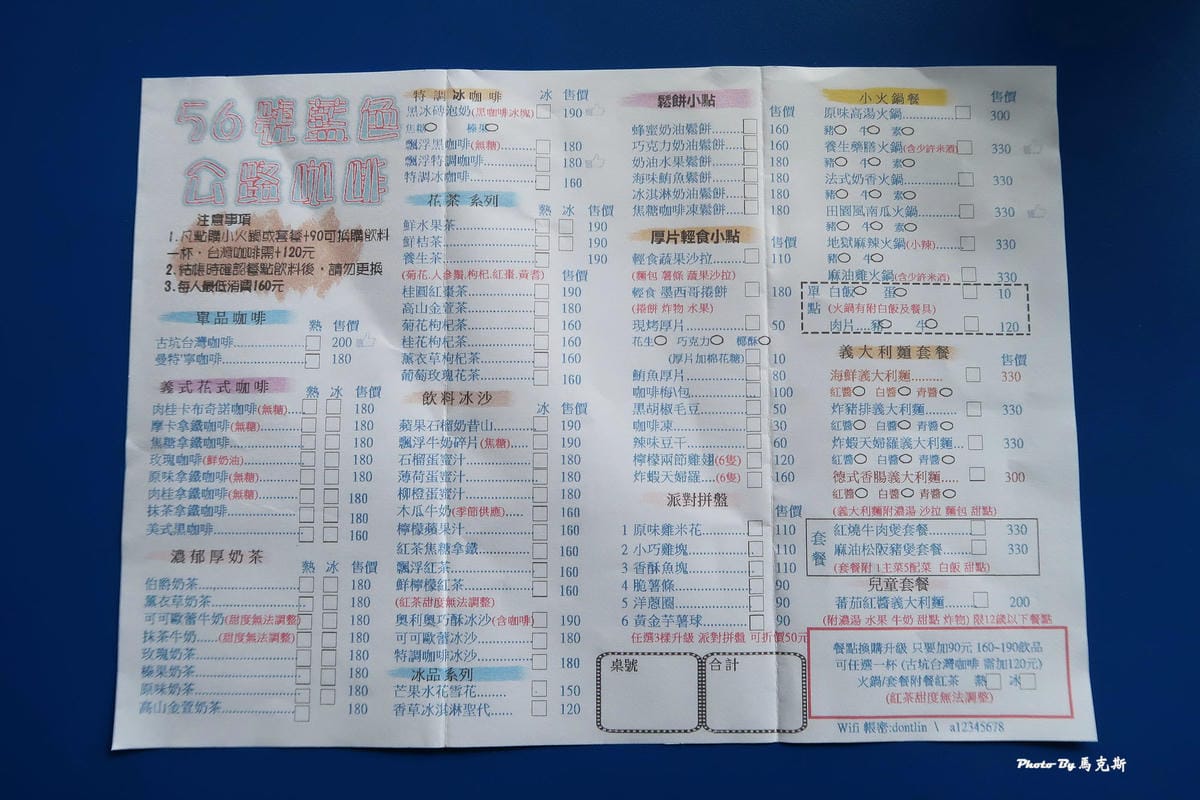 56號藍色
公路咖啡
注意事項
1.凡點購小火鍋或套餐+90可換購飲料
一杯，台灣咖啡需+120元
2.結帳時確認餐點飲料後，請勿更換
3.每人最低消費160元
單品咖啡
熱 售價
古坑台灣咖啡 200
曼特寧咖啡 180
義式花式咖啡 熱 冰 售價
肉桂卡布奇諾咖啡(無糖) 180
摩卡拿鐵咖啡(無糖) 180
焦糖拿鐵咖啡 180
玫瑰咖啡(鮮奶油) 180
原味拿鐵咖啡(無糖) 180
肉桂拿鐵咖啡(無糖) 180
抹茶拿鐵咖啡 180
美式黑咖啡 160
濃郁厚奶茶
熱 冰 售價
伯爵奶茶 180
薰衣草奶茶 180
可可歐蕾牛奶(甜度無法調整) 180
抹茶牛奶(甜度無法調整) 180
玫瑰奶茶 180
榛果奶茶 180
原味奶茶 180
高山金萱奶茶 180
特調冰咖啡 冰 售價
黑冰磚泡奶(黑咖啡冰塊) 190
焦糖 榛果
飄浮黑咖啡(無糖) 180
飄浮特調咖啡 180
特調冰咖啡 160
花茶系列 熱 冰 售價
鮮水果茶 190
鮮桔茶 190
養生茶 190
(菊花.人參鬚.枸杞.紅棗.黃耆) 售價
桂圓紅棗茶 190
高山金萱茶 180
菊花枸杞茶 160
桂花枸杞茶 160
薰衣草枸杞茶 160
葡萄玫瑰花茶 160
飲料冰沙 冰 售價
蘋果石榴奶昔山 190
飄浮牛奶碎片(焦糖) 190
石榴蛋蜜汁 180
薄荷蛋蜜汁 180
柳橙蛋蜜汁 180
木瓜牛奶(季節供應) 160
檸檬蘋果汁 160
紅茶焦糖拿鐵 160
飄浮紅茶 160
鮮檸檬紅茶 160
(紅茶甜度無法調整)
奧利奧巧酥冰沙(含咖啡) 190
可可歐蕾冰沙 180
特調咖啡冰沙 180
冰品系列
芒果水花雪花 150
香草冰淇淋聖代 120
鬆餅小點 售價
蜂蜜奶油鬆餅 160
巧克力奶油鬆餅 160
奶油水果鬆餅 180
海味鮪魚鬆餅 180
冰淇淋奶油鬆餅 180
焦糖咖啡凍鬆餅 180
厚片輕食小點 售價
輕食蔬果沙拉 150
(麵包 薯條 蔬果沙拉)
輕食 墨西哥捲餅 180
(捲餅 炸物 水果)
現烤厚片 50
花生 巧克力 椰酥
(厚片加棉花糖) 10
鮪魚厚片 80
咖啡梅\包 100
黑胡椒毛豆 50
咖啡凍 30
辣味豆干 60
檸檬兩節雞翅(6隻) 120
炸蝦天婦羅(6隻) 160
派對拼盤 售價
1 原味雞米花 110
2 小巧雞塊 110
3 香酥魚塊 110
4 脆薯條 90
5 洋蔥圈 90
6 黃金芋薯球 90
任選3樣升級 派對拼盤 可折價50元
桌號 合計
小火鍋餐 售價
原味高湯火鍋 300
豬 牛 素
養生藥膳火鍋(含少許米酒) 330
豬 牛 素
法式奶香火鍋 330
豬 牛 素
田園風南瓜火鍋 330
豬 牛 素
地獄麻辣火鍋(小辣) 330
豬 牛
麻油雞火鍋(含少許米酒) 330
單點 白飯 蛋 10
(火鍋有附白飯及餐具)
肉片....豬 牛 120
義大利麵套餐 售價
海鮮義大利麵 330
紅醬 白醬 青醬
炸豬排義大利麵 330
紅醬 白醬 青醬
炸蝦天婦羅義大利麵 330
紅醬 白醬 青醬
德式香腸義大利麵 300
紅醬 白醬 青醬
(義大利麵附濃湯 沙拉 麵包 甜點)
套餐 紅燒牛肉煲套餐 330
麻油松阪豬煲套餐 330
(套餐附 1主菜5配菜 白飯 甜點)
兒童套餐
蕃茄紅醬義大利麵 200
(附濃湯 水果 牛奶 甜點 炸物) 限12歲以下餐點
餐點換購升級 只要加90元 160~190飲品
可任選一杯(古坑台灣咖啡 需加120元)
火鍋/套餐附餐紅茶 熱 冰
(紅茶甜度無法調整)
Wifi 帳密:dontlin \ a12345678
Photo By 馬克斯